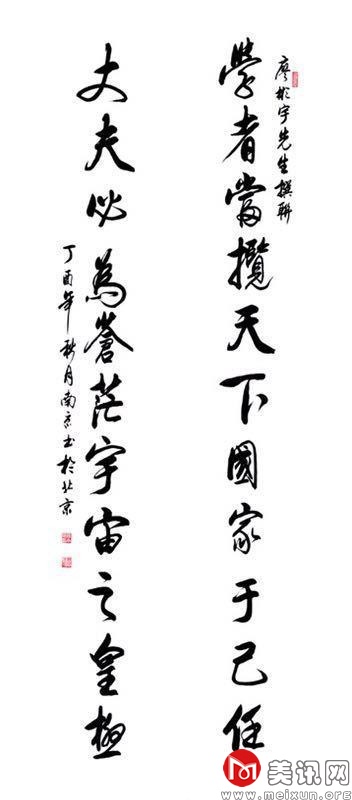 廖彬宇先生撰聯
學者當攬天下國家于己任
丈夫必為蒼茫宇宙之皇極
丁酉年秋月南書於北京
美讯网
www.meixun.org